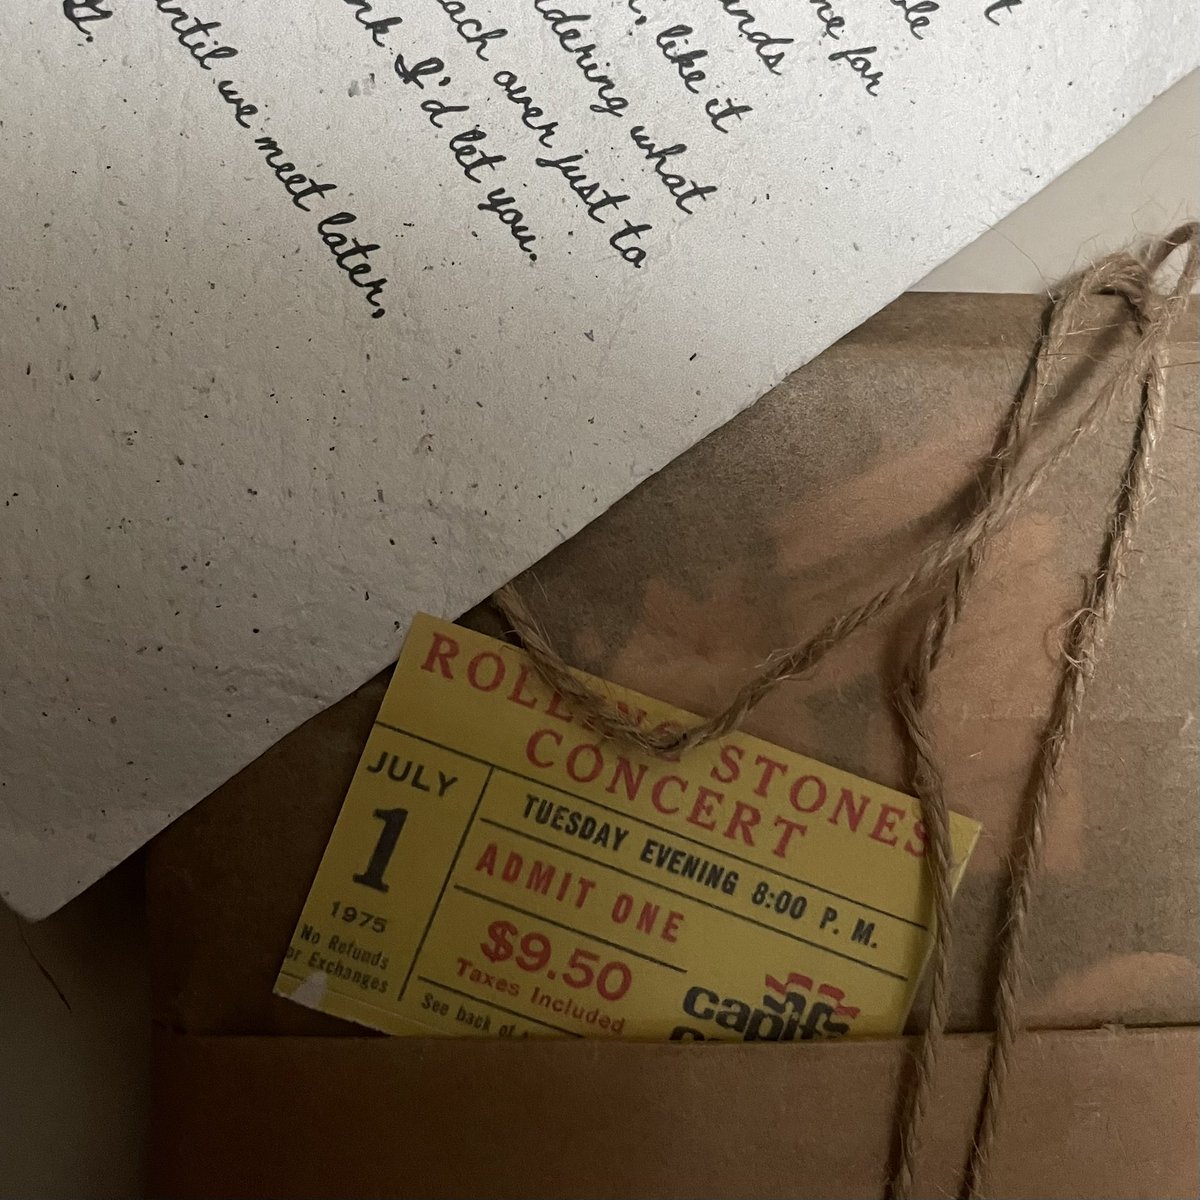 ne for
unds
, like it
dering what
each over just to
nk I'd let you.
until we meet later,
ROLLING STONES
CONCERT
JULY
1
1975
No Refunds
or Exchanges
TUESDAY EVENING 8:00 P. M.
ADMIT ONE
$9.50
Taxes Included
See back of